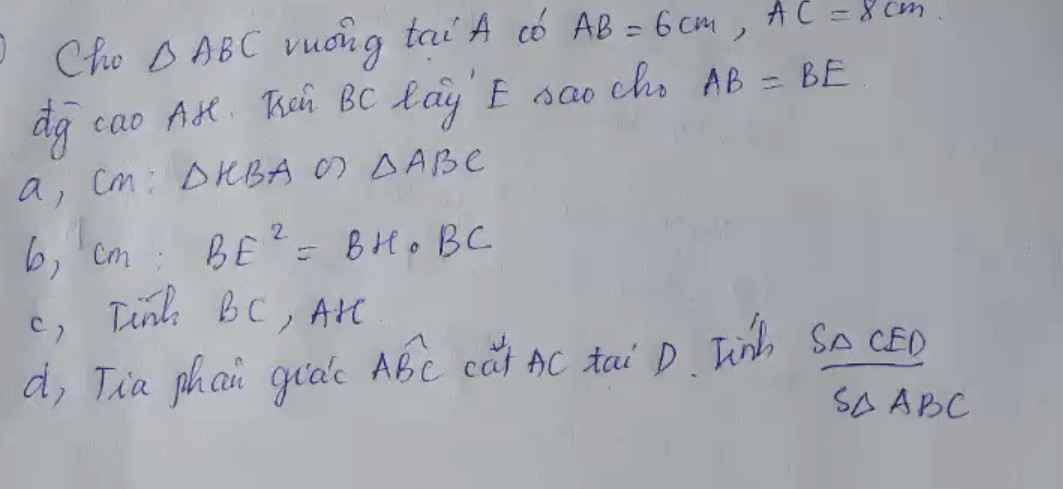 Cho Δ ABC vuông tại A có AB = 6 cm, AC = 8 cm.
đg cao AH. Trên BC lấy E sao cho AB = BE.
a, Cm: ΔHBA ∽ ΔABC
b, Cm: BE² = BH . BC
c, Tính BC, AH
d, Tia phân giác AB̂C cắt AC tại D. Tính SΔ CED / SΔ ABC